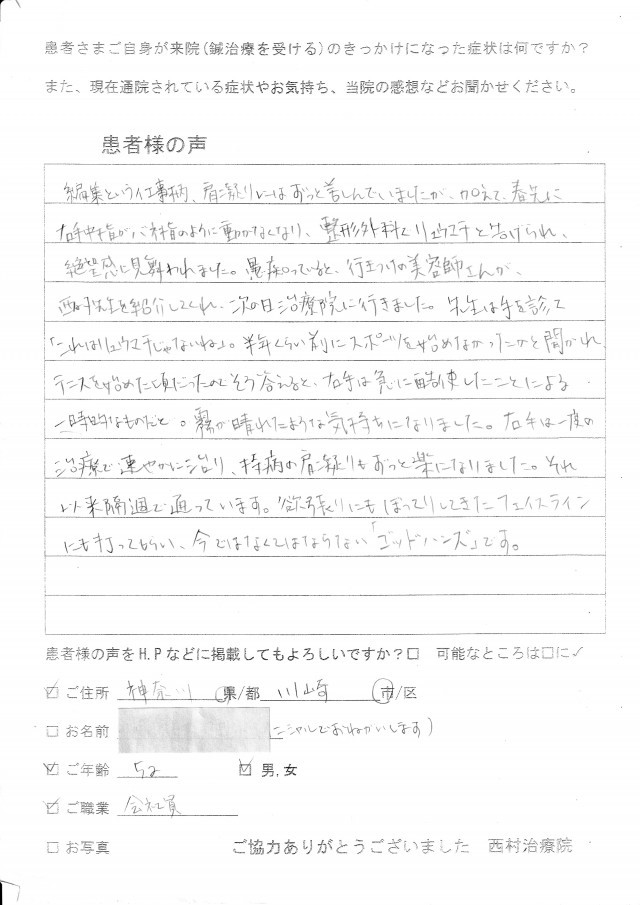 患者さまご自身が来院(鍼治療を受ける)のきっかけになった症状は何ですか?
また、現在通院されている症状やお気持ち、当院の感想などお聞かせください。
患者様の声
編集という仕事柄、肩凝りにはずっと苦しんでいましたが、加えて、春先に
右手中指がバネ指のように動かなくなり、整形外科でリュウマチと告げられ、
絶望感に見舞われました。愚痴っていると、行きつけの美容師さんが、
西村先生を紹介してくれ、次の日治療院に行きました。先生は手を診て
「これはリュウマチじゃないね」。半年くらい前にスポーツを始めなかったかと聞かれ、
テニスを始めた頃だったのでそう答えると、右手は急に酷使したことによる
一時的なものだと。霧が晴れたような気持ちになりました。右手は一度の
治療で速やかに治り、持病の肩凝りもずっと楽になりました。それ
以来隔週で通っています。欲張りにもぼってりしてきたフェイスライン
にも打ってもらい、今ではなくてはならない「ゴッドハンズ」です。
患者様の声をH.Pなどに掲載してもよろしいですか?□ 可能なところは□に✓
☑ ご住所 神奈川 県/都 川崎 市/区
□ お名前 ニシャルでおねがいします)
☑ ご年齢 52 ☑ 男,女
☑ ご職業 会社員
□ お写真 ご協力ありがとうございました 西村治療院